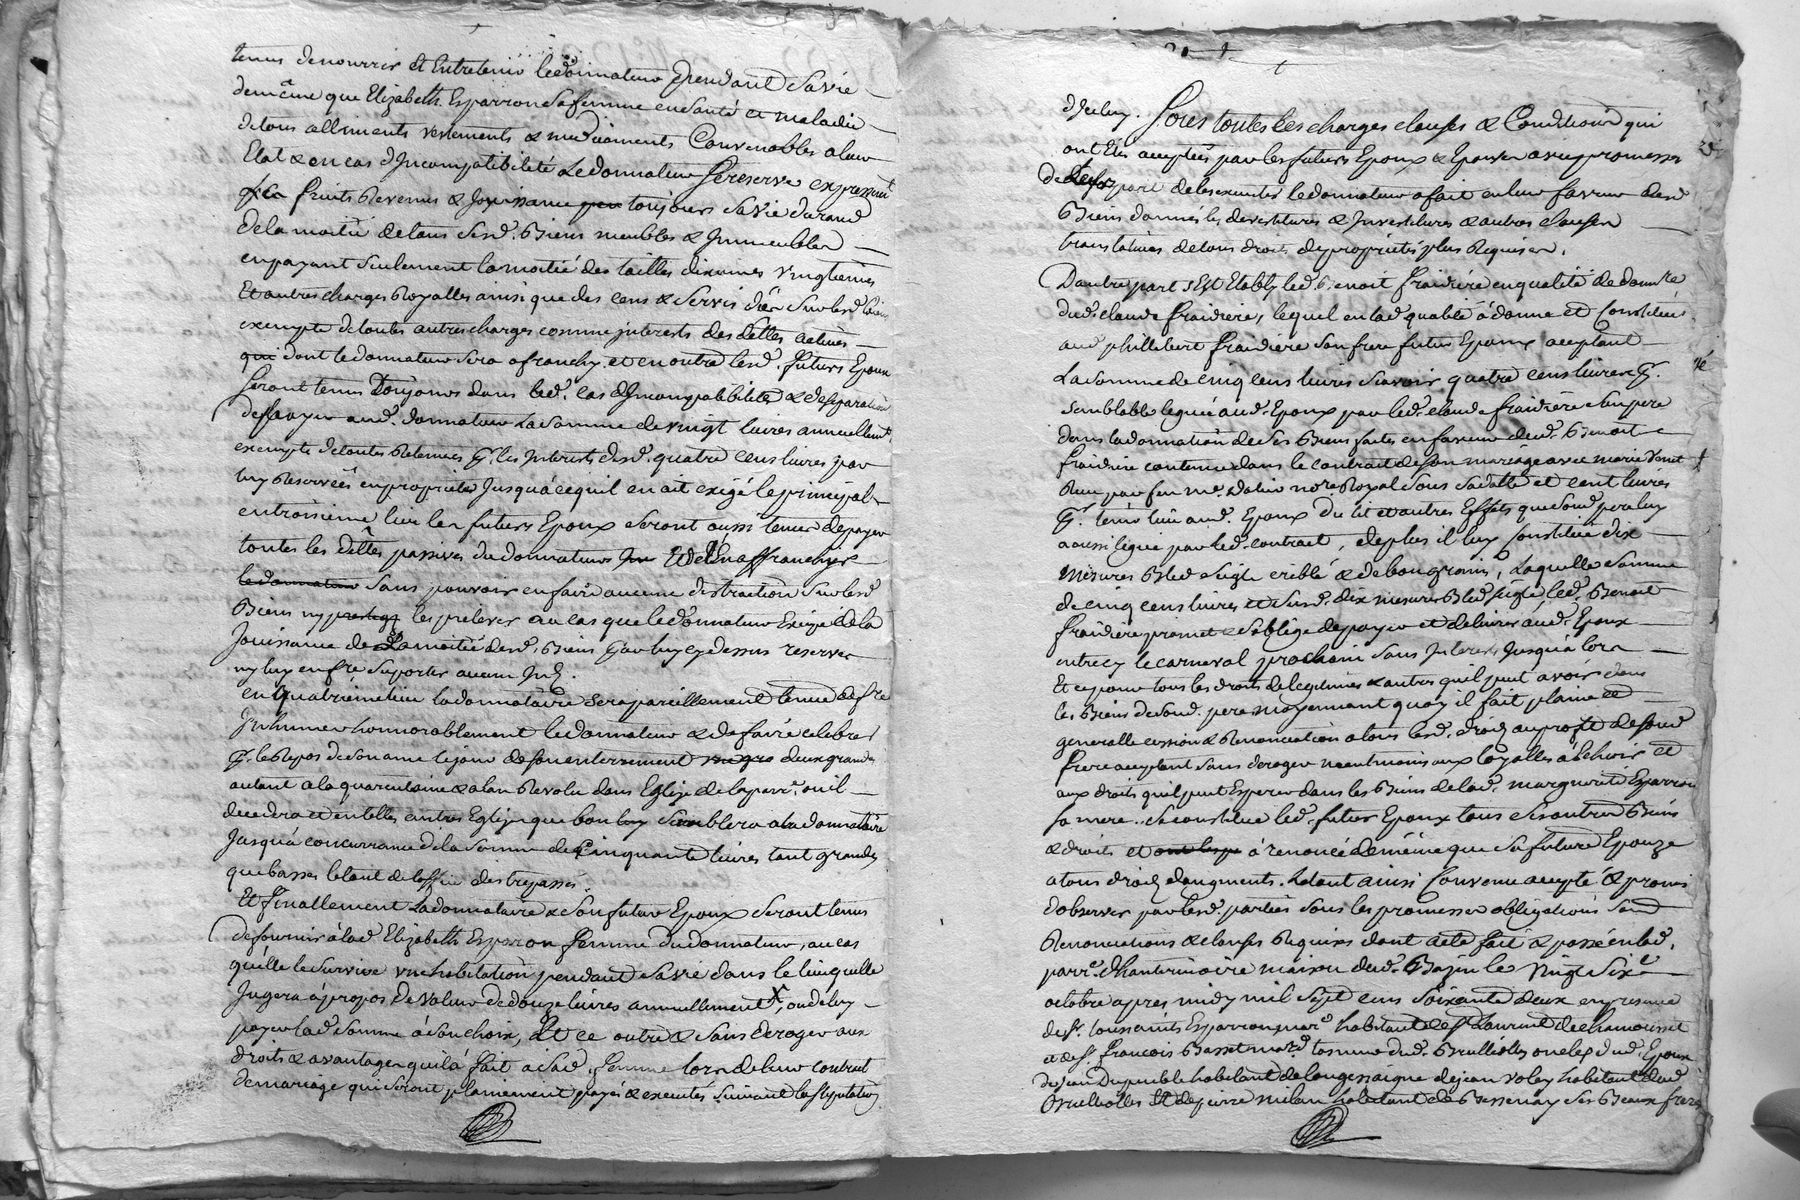 tenus denourrir et Entretenir led donnateur pendant Savie
demême que Elizabeth Esparron Safemme ensanté et maladie
detous alliments vestements & medicaments Convenables aleur
Etat & en cas dJncompatibilité Ledonnateur Sereserve expressemt
Les fruits Revenus & Joüissance toujours Savie durand
dela moitié detous Sesd. Biens meubles & Jmmeubles
enpayant Seulement lamoitié des tailles dixiemes vingtiemes
Et autres charges Royalles ainsi que des cens & Servis dûs Surlesd biens
exempte detoutes autres charges comme jnterests des dettes actives
qui dont ledonnateur Sera afranchy, et en outre lesd. futurs Epoux
Seront tenus Toujours dans led. cas dJncompatibilité & deSeparation
depayer aud. donnateur Lasomme devingt livres annuellemt
exempte detoutes Retenues p. les Jnterests desd. quatre cens livres par
luy Reservées enpropriété Jusqu'acequil en ait exigé leprincipal
entroisieme lieu les futurs Epoux Seront aussi tenus depayer
toutes les dêttes passives dudonnateur Et deLen affranchir
ledonnateur Sans pouvoir enfaire aucune distraction Surlesd
Biens ny les prelever au cas que led donnateur Exige dela
Joüissance de Lamoitié desd. Biens par luy cy dessus reservee
ny luy en fre Suporter aucun Jnt.
en Quatriéme lieu ladonnataire Serapareillement tenue defre
Jnhumer honnorablement ledonnateur & defaire celebrer
p. leRepos deson ame lejour deson enterrement deux grandes
autant a laquarentaine & alan Revolu dans Eglize delaparr. ou il
decedera et entelles autres Eglizes que bon Semblera aladonnataire
Jusqu'à concurrance dela Somme de Cinquante livres tant grandes
que basses letout deloffice des trépassés.
Et finallement Ladonnataire & Sonfutur Epoux Seront tenus
defournir àlad Elizabeth Esparron femme dudonnateur, au cas
qu'elle le Survive vne habitation pendant Savie dans le lieu quelle
Jugera àpropos de Valeur dedouze livres annuellement, oudeluy
payer lad Somme àSonchoix, Et ce outre & Sans déroger aux
droits & avantages quila fait a Sad. femme lors deleur contrat
demariage qui Seront plainement payés & executés Suivant laStipulation
dJceluy. Sous toutes les charges clauses & Conditions qui
ont Etés acceptées par lesfuturs Epoux & Epouse avec promesse
de leur part deles executer ledonnateur a fait en leur faveur desd
Biens donnés les devestitures & Jnvestitures & autres clauses
translatives detous droits depropriété plus Requises.
Dautre part sEst Etably led Benoit fraidiére enqualité dedonnre
dud. claude fraidiere, lequel en lad qualité à donné et Constitué
aud phillibert fraidiere Sonfrere futur Epoux acceptant
Lasomme de cinq cens livres Scavoir quatre cens livres p.
Semblable leguée aud. Epoux par led. claude fraidiére Sonpere
dans ladonnation de Ses Biens faites en faveur dud. Benoit
fraidiere contenue dans le contrat deson mariage avec marie
Reçu par feu me. Dalin no.re Royal Sous Sadatte et cent livres
p. tenir lieu aud. Epoux du lit et autres Effets que Sond pere luy
a aussi legué par led. contrat, deplus il luy Constitue dix
mesures Bled Seigle criblé & debon grains, Laquelle Somme
de cinq cens livres et Susd. dix mesures Bled Seigle, led. Benoit
fraidiere promet & Soblige depayer et delivrer aud. Epoux
entrecy le carneval prochain Sans Jnterests Jusqu'à lors
Et cepour tous les droits de legitimes & autres quil peut avoir dans
les Biens deSond. pere moyennant quoy il fait plaine et
generalle cession & Renonciation a tous lesd. droits auprofit deSond
frere acceptant Sans deroger neantmoins aux loyalles àEchoir et
aux droits quil peut Esperer dans les Biens delad. marguerite Esparron
Sa mere. Seconstitue led. futur Epoux tous ses autres Biens
& droits et à renoncé demême que Sa future Epouze
a tous droits daugments. Letout ainsi Convenu accepté & promis
dobserver par lesd. parties Sous les promesses obligations Soum
Renonciations & clauses Requises dont acte fait & passé enlad.
parr. dhauterivoire maison dud. Bajin le vingt Sixe
octobre apres midy mil Sept cens Soixante deux en presence
de Sr. toussaints Esparron mar. habitant de St Laurent dechamousset
et de Sr. francois Basset mard. tos nieu dud. Brullioles oncles dud. Epoux
de jean Dupuible habitant delongessaigne dejean voley habitant dud
Brullioles Et depierre milan habitant de Bessenay Ses Beaux freres